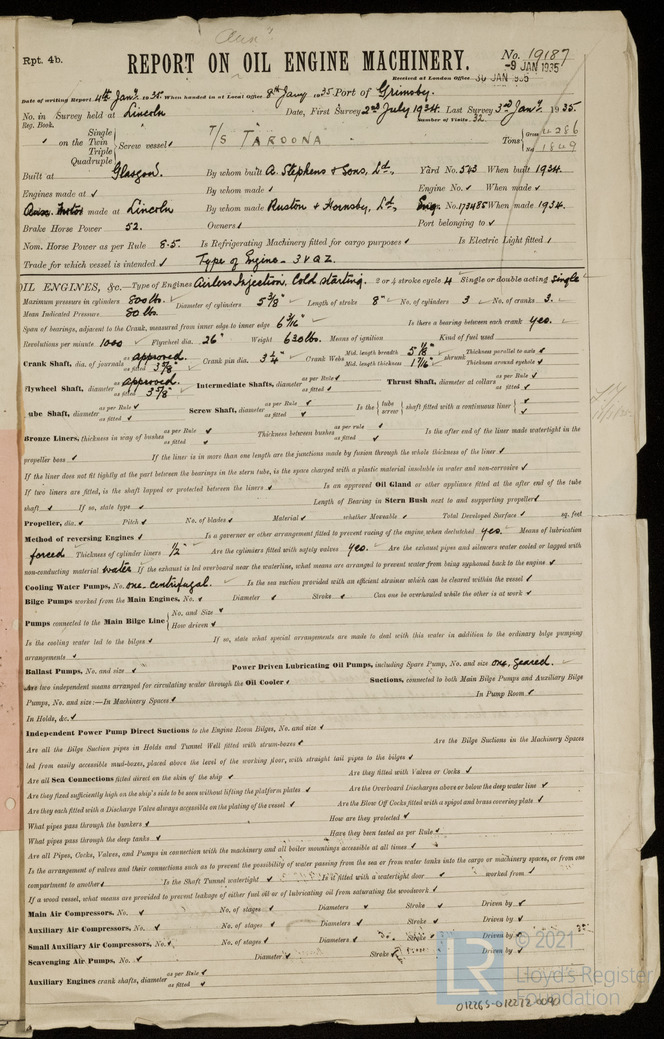 Rpt. 4b.
REPORT ON OIL ENGINE MACHINERY.
No. 19187
-9 JAN 1935
Received at London Office 30 JAN 1935
Date of writing Report 4th Jany. 1935. When handed in at Local Office 8th Jany 1935 Port of Grimsby.
No. in Survey held at Lincoln Date, First Survey 2nd July 1934. Last Survey 3rd Jany. 1935.
Reg. Book. Number of Visits 32
Single
on the Twin Screw vessel T/S TAROONA Tons Gross 4286
Triple Net 1849
Quadruple
Built at Glasgow. By whom built A. Stephens & Sons, Ld., Yard No. 543 When built 1934.
Engines made at By whom made Engine No. When made
made at Lincoln By whom made Ruston & Hornsby, Ld., Eng. No. 173485 When made 1934.
Brake Horse Power 52. Owners Port belonging to
Nom. Horse Power as per Rule 8.5. Is Refrigerating Machinery fitted for cargo purposes Is Electric Light fitted
Trade for which vessel is intended Type of Engine - 3VQZ.
OIL ENGINES, &c.—Type of Engines Airless Injection, Cold starting. 2 or 4 stroke cycle 4 Single or double acting Single
Maximum pressure in cylinders 800 lbs. Diameter of cylinders 5 3/8" Length of stroke 8" No. of cylinders 3 No. of cranks 3.
Mean Indicated Pressure 80 lbs.
Span of bearings, adjacent to the Crank, measured from inner edge to inner edge 6 3/16" Is there a bearing between each crank yes.
Revolutions per minute 1000 Flywheel dia. 26" Weight 630 lbs. Means of ignition Kind of fuel used
Crank Shaft, dia. of journals as per Rule approved. as fitted 3 5/8" Crank pin dia. 3 1/4" Crank Webs Mid. length breadth 5 1/8" Mid. length thickness 1 7/16" shrunk Thickness parallel to axis Thickness around eyehole
Flywheel Shaft, diameter as per Rule approved. as fitted 3 5/8" Intermediate Shafts, diameter as per Rule as fitted Thrust Shaft, diameter at collars as per Rule as fitted
Tube Shaft, diameter as per Rule as fitted Screw Shaft, diameter as per Rule as fitted Is the tube screw shaft fitted with a continuous liner
Bronze Liners, thickness in way of bushes as per Rule as fitted Thickness between bushes as per rule as fitted Is the after end of the liner made watertight in the
propeller boss If the liner is in more than one length are the junctions made by fusion through the whole thickness of the liner
If the liner does not fit tightly at the part between the bearings in the stern tube, is the space charged with a plastic material insoluble in water and non-corrosive
If two liners are fitted, is the shaft lapped or protected between the liners Is an approved Oil Gland or other appliance fitted at the after end of the tube
shaft If so, state type Length of Bearing in Stern Bush next to and supporting propeller
Propeller, dia. Pitch No. of blades Material whether Moveable Total Developed Surface sq. feet
Method of reversing Engines Is a governor or other arrangement fitted to prevent racing of the engine when declutched yes. Means of lubrication
forced Thickness of cylinder liners 1/2" Are the cylinders fitted with safety valves yes. Are the exhaust pipes and silencers water cooled or lagged with
non-conducting material water If the exhaust is led overboard near the waterline, what means are arranged to prevent water from being syphoned back to the engine
Cooling Water Pumps, No. one. centrifugal. Is the sea suction provided with an efficient strainer which can be cleared within the vessel
Bilge Pumps worked from the Main Engines, No. Diameter Stroke Can one be overhauled while the other is at work
Pumps connected to the Main Bilge Line No. and Size
How driven
Is the cooling water led to the bilges If so, state what special arrangements are made to deal with this water in addition to the ordinary bilge pumping
arrangements
Ballast Pumps, No. and size Power Driven Lubricating Oil Pumps, including Spare Pump, No. and size one. geared.
Are two independent means arranged for circulating water through the Oil Cooler Suctions, connected to both Main Bilge Pumps and Auxiliary Bilge
Pumps, No. and size:—In Machinery Spaces In Pump Room
In Holds, &c.
Independent Power Pump Direct Suctions to the Engine Room Bilges, No. and size
Are all the Bilge Suction pipes in Holds and Tunnel Well fitted with strum-boxes Are the Bilge Suctions in the Machinery Spaces
led from easily accessible mud-boxes, placed above the level of the working floor, with straight tail pipes to the bilges
Are all Sea Connections fitted direct on the skin of the ship Are they fitted with Valves or Cocks
Are they fixed sufficiently high on the ship's side to be seen without lifting the platform plates Are the Overboard Discharges above or below the deep water line
Are they each fitted with a Discharge Valve always accessible on the plating of the vessel Are the Blow Off Cocks fitted with a spigot and brass covering plate
What pipes pass through the bunkers How are they protected
What pipes pass through the deep tanks Have they been tested as per Rule
Are all Pipes, Cocks, Valves, and Pumps in connection with the machinery and all boiler mountings accessible at all times
Is the arrangement of valves and their connections such as to prevent the possibility of water passing from the sea or from water tanks into the cargo or machinery spaces, or from one
compartment to another Is the Shaft Tunnel watertight Is it fitted with a watertight door worked from
If a wood vessel, what means are provided to prevent leakage of either fuel oil or of lubricating oil from saturating the woodwork
Main Air Compressors, No. No. of stages Diameters Stroke Driven by
Auxiliary Air Compressors, No. No. of stages Diameters Stroke Driven by
Small Auxiliary Air Compressors, No. No. of stages Diameters Stroke Driven by
Scavenging Air Pumps, No. Diameter Stroke Driven by
Auxiliary Engines crank shafts, diameter as per Rule as fitted
© 2021
Lloyd's Register
Foundation
012265-012272-0090